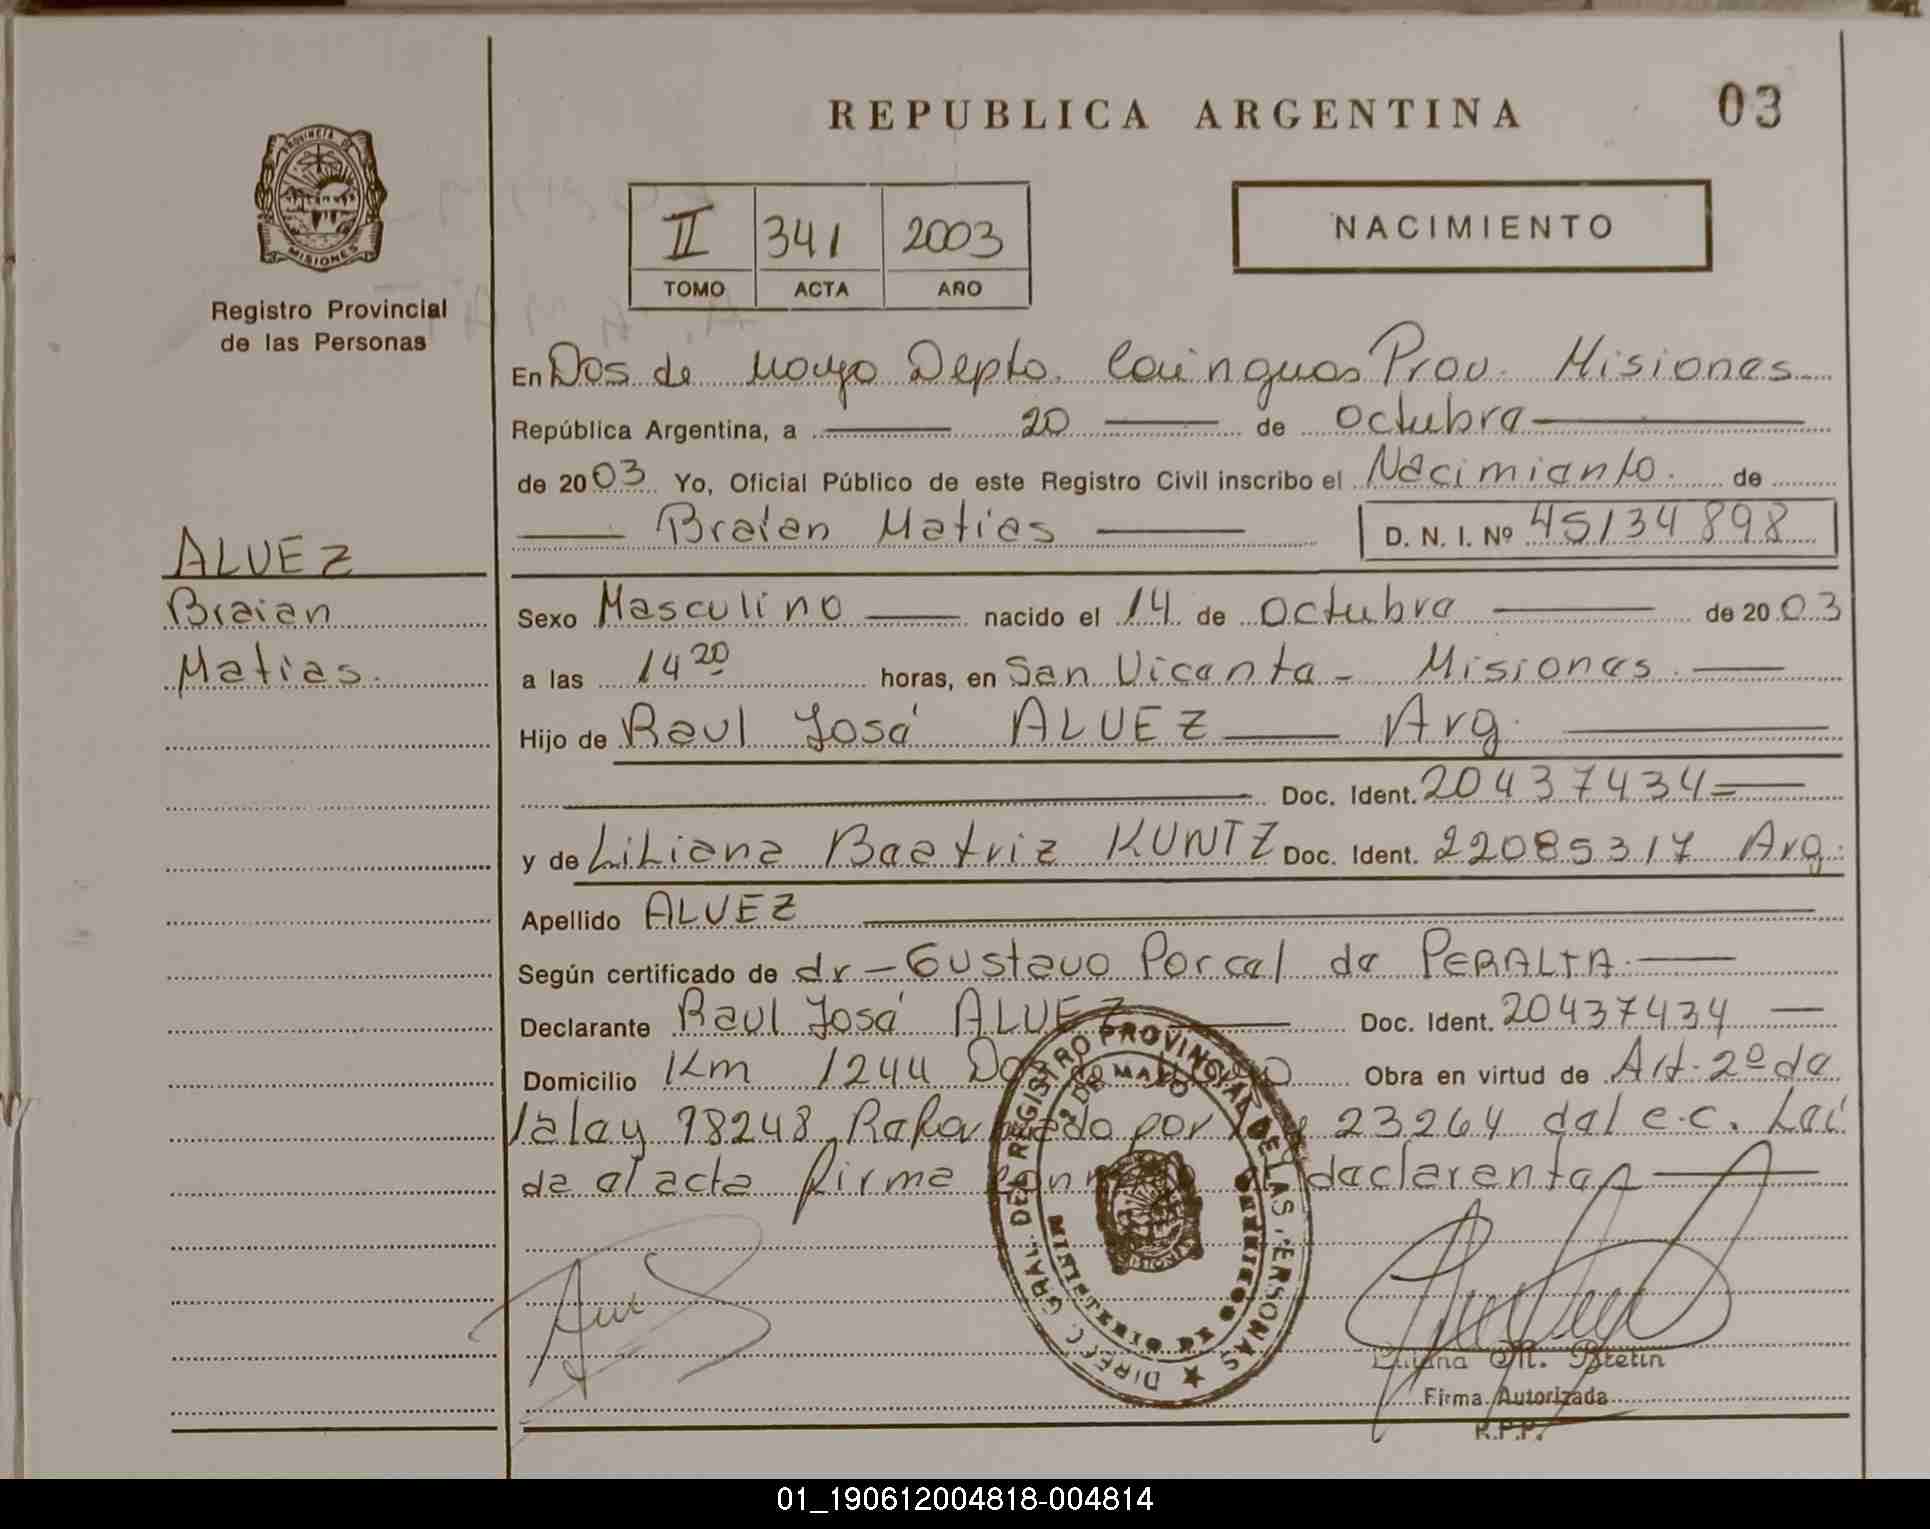 REPUBLICA ARGENTINA
03
PROVINCIA DE
MISIONES
Registro Provincial
de las Personas
II 341 2003
TOMO ACTA AÑO
NACIMIENTO
En Dos de Mayo Depto. Cainguas Prov. Misiones
República Argentina, a 20 de octubre
de 2003 Yo, Oficial Público de este Registro Civil inscribo el Nacimiento. de
Braian Matias
D. N. I. Nº 45134898
ALVEZ
Braian
Matias.
Sexo Masculino nacido el 14 de octubre de 2003
a las 14 20 horas, en San Vicente - Misiones.
Hijo de Raul José ALVEZ Arg.
Doc. Ident. 20437434=
y de Liliana Beatriz KUNTZ Doc. Ident. 22085317 Arg.
Apellido ALVEZ
Según certificado de dr - Gustavo Porcel de PERALTA.
Declarante Raul José ALVEZ Doc. Ident. 20437434
Domicilio Km 1244 Dos de Mayo Obra en virtud de Art. 2º de
la ley 18248, por 23264 del c.c. Lei
da el acta firma declarante
DIREC. GRAL. DEL REGISTRO PROVINCIAL DE LAS PERSONAS
2 DE MAYO
MINISTERIO DE GOBIERNO
MISIONES
M. Bretin
Firma Autorizada
R.P.P.
01_190612004818-004814